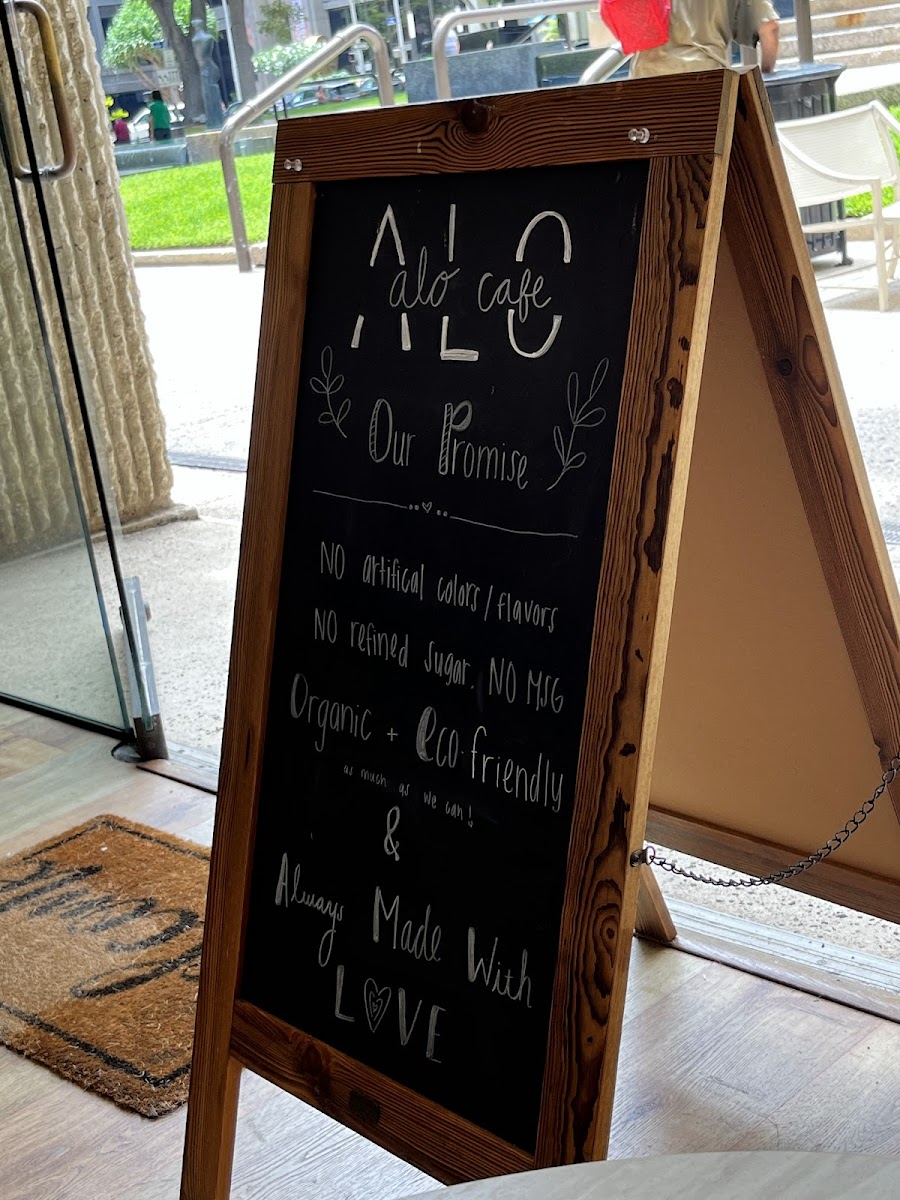 ALO
alo cafe
Our Promise
NO artifical colors/flavors
NO refined sugar. NO MSG
Organic + eco-friendly
as much as we can!
&
Always Made With
LOVE